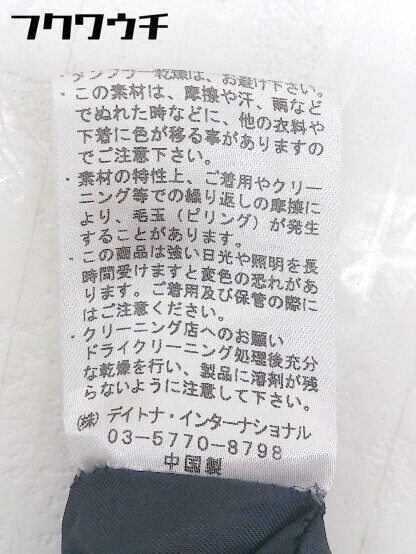 フクワウチ
・タンブラー乾燥は、お避け下さい。
・この素材は、摩擦や汗、雨など
でぬれた時などに、他の衣料や
下着に色が移る事がありますの
でご注意下さい。
・素材の特性上、ご着用やクリー
ニング等での繰り返しの摩擦に
より、毛玉（ピリング）が発生
することがあります。
・この商品は強い日光や照明を長
時間受けますと変色の恐れがあ
ります。ご着用及び保管の際に
はご注意ください。
・クリーニング店へのお願い
ドライクリーニング処理後充分
な乾燥を行い、製品に溶剤が残
らないように注意して下さい。
㈱デイトナ・インターナショナル
03-5770-8798
中国製